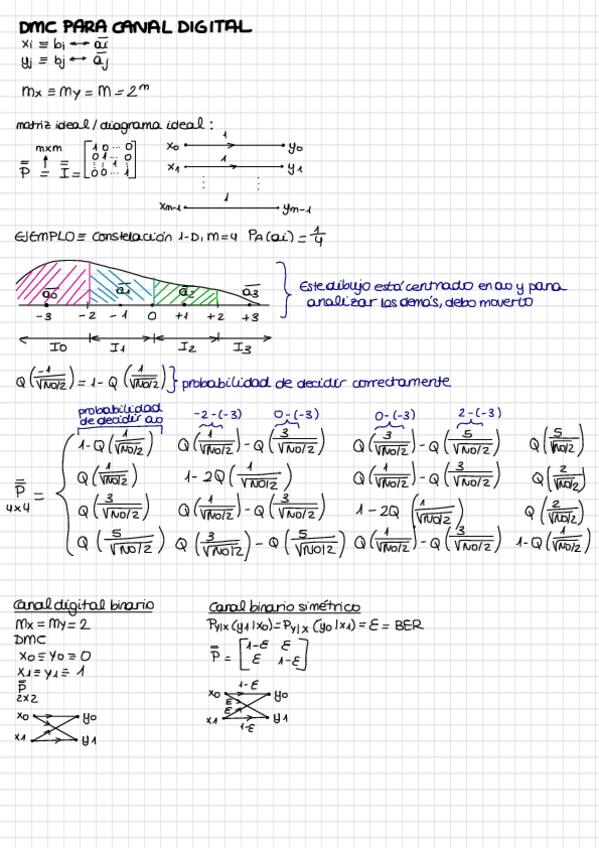 DMC PARA CANAL DIGITAL
xi ≡ bi ↔ āi
yj ≡ bj ↔ āj
Mx ≡ My = M = 2^m
matriz ideal / diagrama ideal :
mxm
P = I = [1 0 ... 0
0 1 ... 0
1
0 0 ... 1]
x0 1 y0
x1 1 y1
xm-1 1 ym-1
EJEMPLO ≡ Constelación 1-D, M=4 PA(ai) = 1/4
a0 a1 a2 a3
-3 -2 -1 0 +1 +2 +3
I0 I1 I2 I3
Este dibujo está centrado en a0 y para
analizar los demás, debo moverlo
Q(-1/√N0/2) = 1 - Q(1/√N0/2) } probabilidad de decidir correctamente
probabilidad de decidir a0
-2-(-3) 0-(-3) 0-(-3) 2-(-3)
1-Q(1/√N0/2) Q(1/√N0/2)-Q(3/√N0/2) Q(3/√N0/2)-Q(5/√N0/2) Q(5/√N0/2)
Q(1/√N0/2) 1-2Q(1/√N0/2) Q(1/√N0/2)-Q(3/√N0/2) Q(2/√N0/2)
P =
4x4
Q(3/√N0/2) Q(1/√N0/2)-Q(3/√N0/2) 1-2Q(1/√N0/2) Q(2/√N0/2)
Q(5/√N0/2) Q(3/√N0/2)-Q(5/√N0/2) Q(1/√N0/2)-Q(3/√N0/2) 1-Q(1/√N0/2)
Canal digital binario
Mx = My = 2
DMC
x0 ≡ y0 ≡ 0
x1 ≡ y1 ≡ 1
P
2x2
x0 y0
x1 y1
Canal binario simétrico
PY|X(y1|x0) = PY|X(y0|x1) = ε = BER
P = [1-ε ε
ε 1-ε]
1-ε
x0 y0
ε
ε
x1 y1
1-ε